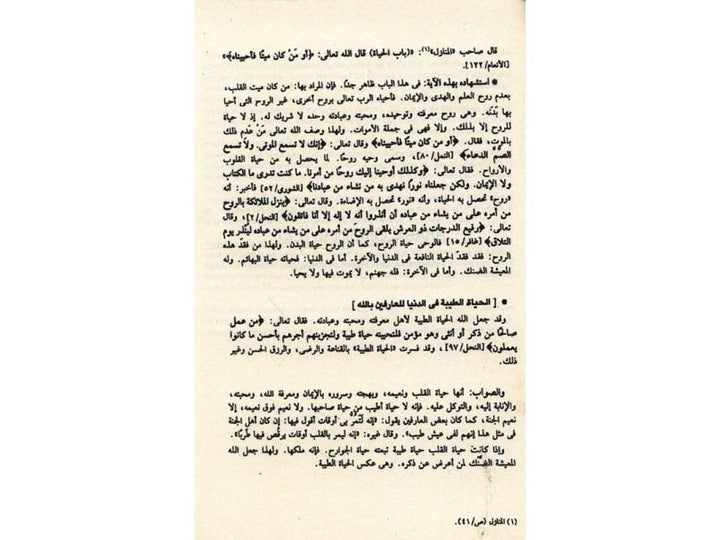 قال صاحب «المنازل»(١): «(باب الحياة) قال الله تعالى: ﴿أو مَنْ كان ميتًا فأحييناه﴾»
[الأنعام/١٢٢].
● استشهاده بهذه الآية: فى هذا الباب ظاهر جدًا. فإن المراد بها: من كان ميت القلب،
بعدم روح العلم والهدى والإيمان. فأحياه الرب تعالى بروح أخرى، غير الروح التى أحيا
بها بَدَنَه. وهى روح معرفته وتوحيده، ومحبته وعبادته وحده لا شريك له. إذ لا حياة
للروح إلا بذلك. وإلا فهى فى جملة الأموات. ولهذا وصف الله تعالى مَنْ عَدِم ذلك
بالموت، فقال. ﴿أو من كان ميتًا فأحييناه﴾ وقال تعالى: ﴿إنك لا تسمع الموتى. ولا تسمع
الصمَّ الدعاء﴾ [النمل/٨٠]، وسمى وحيه روحًا. لما يحصل به من حياة القلوب
والأرواح. فقال تعالى: ﴿وكذلك أوحينا إليك روحًا من أمرنا. ما كنت تدرى ما الكتاب
ولا الإيمان. ولكن جعلناه نورًا نهدى به من نشاء من عبادنا﴾ [الشورى/٥٢] فأخبر: أنه
«روح» تحصل به الحياة، وأنه «نور» تحصل به الإضاءة. وقال تعالى: ﴿ينزل الملائكة بالروح
من أمره على من يشاء من عباده أن أنذروا أنه لا إله إلا أنا فاتقون﴾ [النحل/٢]، وقال
تعالى: ﴿رفيع الدرجات ذو العرش يلقى الروحَ من أمره على من يشاء من عباده ليُنذر يوم
التلاق﴾ [غافر/١٥] فالوحى حياة الروح، كما أن الروح حياة البدن. ولهذا من فقد هذه
الروح: فقد فقدَ الحياة النافعة فى الدنيا والآخرة. أما فى الدنيا: فحياته حياة البهائم. وله
المعيشة الضنك. وأما فى الآخرة: فله جهنم، لا يموت فيها ولا يحيا.
● [ الحياة الطيبة فى الدنيا للعارفين بالله ]
وقد جعل الله الحياة الطيبة لأهل معرفته ومحبته وعبادته. فقال تعالى: ﴿من عمل
صالحًا من ذكر أو أنثى وهو مؤمن فلنحيينه حياة طيبة ولنجزينهم أجرهم بأحسن ما كانوا
يعملون﴾ [النحل/٩٧]، وقد فسرت «الحياة الطيبة» بالقناعة والرضى، والرزق الحسن وغير
ذلك.
والصواب: أنها حياة القلب ونعيمه، وبهجته وسروره بالإيمان ومعرفة الله، ومحبته،
والإنابة إليه، والتوكل عليه. فإنه لا حياة أطيب من حياة صاحبها. ولا نعيم فوق نعيمه، إلا
نعيم الجنة، كما كان بعض العارفين يقول: «إنه لَتَمُرُّ بى أوقات أقول فيها: إن كان أهل الجنة
فى مثل هذا إنهم لفى عيش طيب». وقال غيره: «إنه ليمر بالقلب أوقات يرقُص فيها طربًا».
وإذا كانت حياة القلب حياة طيبة تبعته حياة الجوارح. فإنه ملكها. ولهذا جعل الله
المعيشة الضنك لمن أعرض عن ذكره. وهى عكس الحياة الطيبة.
(١) المنازل (ص/٤١).